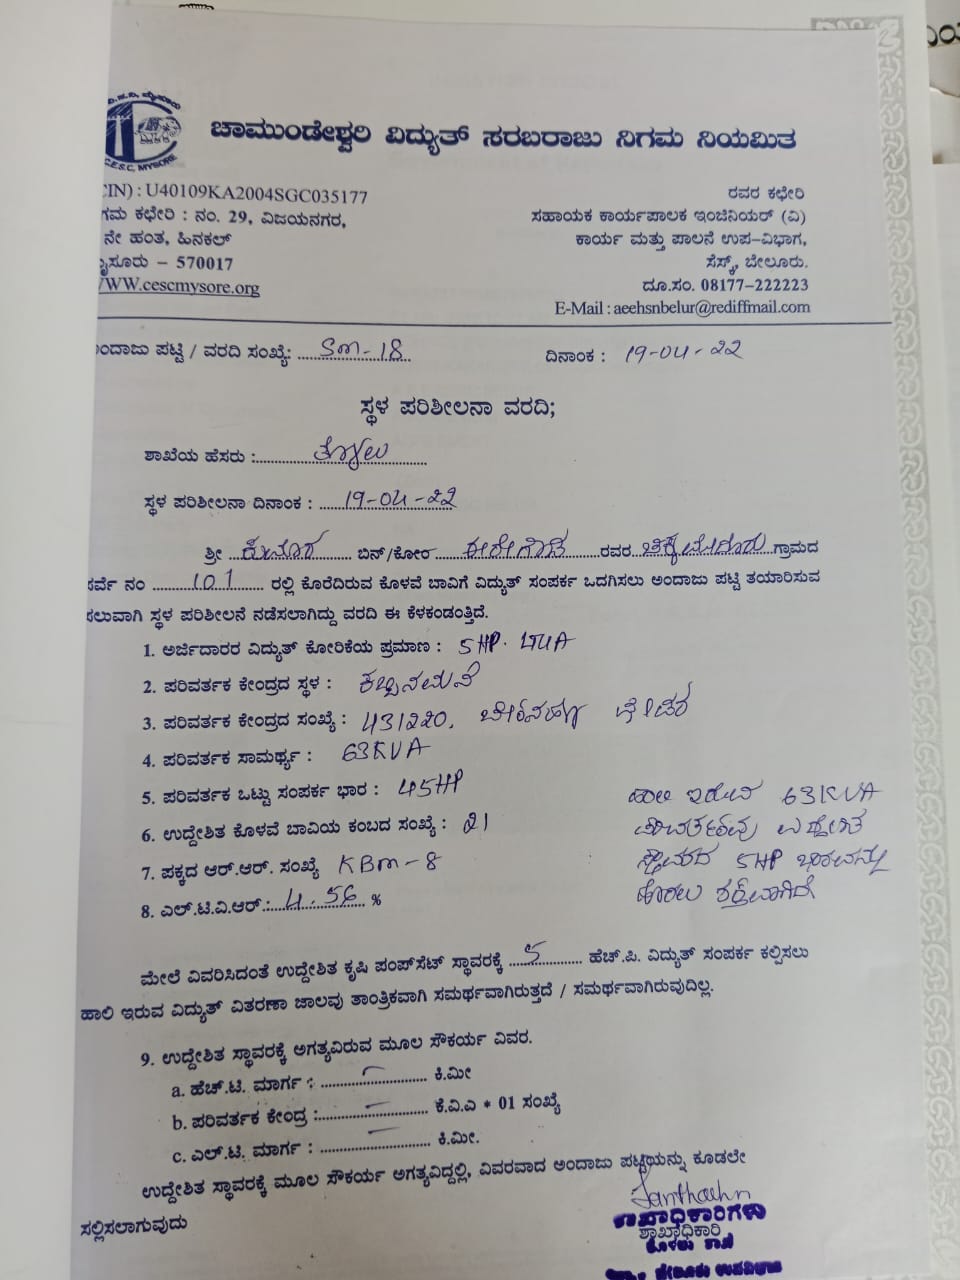 ಚಾಮುಂಡೇಶ್ವರಿ ವಿದ್ಯುತ್ ಸರಬರಾಜು ನಿಗಮ ನಿಯಮಿತ
C.E.S.C, MYSORE
CIN) : U40109KA2004SGC035177
ಗಮ ಕಛೇರಿ : ನಂ. 29, ವಿಜಯನಗರ,
ನೇ ಹಂತ, ಹಿನಕಲ್
ಮೈಸೂರು – 570017
WWW.cescmysore.org
ರವರ ಕಛೇರಿ
ಸಹಾಯಕ ಕಾರ್ಯಪಾಲಕ ಇಂಜಿನಿಯರ್ (ವಿ)
ಕಾರ್ಯ ಮತ್ತು ಪಾಲನೆ ಉಪ–ವಿಭಾಗ,
ಸೆಸ್ಕ್, ಬೇಲೂರು.
ದೂ.ಸಂ. 08177–222223
E-Mail : aeehsnbelur@rediffmail.com
ಅಂದಾಜು ಪಟ್ಟಿ / ವರದಿ ಸಂಖ್ಯೆ: Sm-18 ದಿನಾಂಕ : 19-04-22
ಸ್ಥಳ ಪರಿಶೀಲನಾ ವರದಿ;
ಶಾಖೆಯ ಹೆಸರು :
ಸ್ಥಳ ಪರಿಶೀಲನಾ ದಿನಾಂಕ : 19-04-22
ಶ್ರೀ ಕುಮಾರ ಬಿನ್/ಕೋಂ ಈರೇಗೌಡ ರವರ ಗ್ರಾಮದ
ಸರ್ವೆ ನಂ 101 ರಲ್ಲಿ ಕೊರೆದಿರುವ ಕೊಳವೆ ಬಾವಿಗೆ ವಿದ್ಯುತ್ ಸಂಪರ್ಕ ಒದಗಿಸಲು ಅಂದಾಜು ಪಟ್ಟಿ ತಯಾರಿಸುವ
ಸಲುವಾಗಿ ಸ್ಥಳ ಪರಿಶೀಲನೆ ನಡೆಸಲಾಗಿದ್ದು ವರದಿ ಈ ಕೆಳಕಂಡಂತ್ತಿದೆ.
1. ಅರ್ಜಿದಾರರ ವಿದ್ಯುತ್ ಕೋರಿಕೆಯ ಪ್ರಮಾಣ : 5HP.
2. ಪರಿವರ್ತಕ ಕೇಂದ್ರದ ಸ್ಥಳ : ಕಬ್ಬಿನಮನೆ
3. ಪರಿವರ್ತಕ ಕೇಂದ್ರದ ಸಂಖ್ಯೆ : 431220,
4. ಪರಿವರ್ತಕ ಸಾಮರ್ಥ್ಯ : 63KVA
5. ಪರಿವರ್ತಕ ಒಟ್ಟು ಸಂಪರ್ಕ ಭಾರ : 45HP
6. ಉದ್ದೇಶಿತ ಕೊಳವೆ ಬಾವಿಯ ಕಂಬದ ಸಂಖ್ಯೆ : 21
7. ಪಕ್ಕದ ಆರ್.ಆರ್. ಸಂಖ್ಯೆ KBm-8
8. ಎಲ್.ಟಿ.ವಿ.ಆರ್.: 4.56 %
ಹಾಲಿ ಇರುವ 63KVA
ಪರಿವರ್ತಕವು ಉದ್ದೇಶಿತ
ಸ್ಥಾವರದ 5HP ಭಾರವನ್ನು
ಹೊರಲು ಶಕ್ತವಾಗಿದೆ
ಮೇಲೆ ವಿವರಿಸಿದಂತೆ ಉದ್ದೇಶಿತ ಕೃಷಿ ಪಂಪ್‌ಸೆಟ್ ಸ್ಥಾವರಕ್ಕೆ 5 ಹೆಚ್.ಪಿ. ವಿದ್ಯುತ್ ಸಂಪರ್ಕ ಕಲ್ಪಿಸಲು
ಹಾಲಿ ಇರುವ ವಿದ್ಯುತ್ ವಿತರಣಾ ಜಾಲವು ತಾಂತ್ರಿಕವಾಗಿ ಸಮರ್ಥವಾಗಿರುತ್ತದೆ / ಸಮರ್ಥವಾಗಿರುವುದಿಲ್ಲ.
9. ಉದ್ದೇಶಿತ ಸ್ಥಾವರಕ್ಕೆ ಅಗತ್ಯವಿರುವ ಮೂಲ ಸೌಕರ್ಯ ವಿವರ.
a. ಹೆಚ್.ಟಿ. ಮಾರ್ಗ : – ಕಿ.ಮೀ
b. ಪರಿವರ್ತಕ ಕೇಂದ್ರ : – ಕೆ.ವಿ.ಎ * 01 ಸಂಖ್ಯೆ
c. ಎಲ್.ಟಿ. ಮಾರ್ಗ : – ಕಿ.ಮೀ.
ಉದ್ದೇಶಿತ ಸ್ಥಾವರಕ್ಕೆ ಮೂಲ ಸೌಕರ್ಯ ಅಗತ್ಯವಿದ್ದಲ್ಲಿ, ವಿವರವಾದ ಅಂದಾಜು ಪಟ್ಟಿಯನ್ನು ಕೂಡಲೇ
ಸಲ್ಲಿಸಲಾಗುವುದು
ಶಾಖಾಧಿಕಾರಿಗಳು
ಶಾಖಾಧಿಕಾರಿ